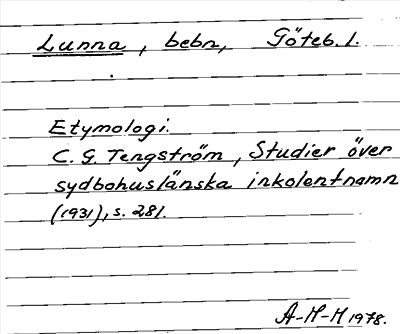 Lunna, bebn, Göteb. l.
Etymologi.
C. G. Tengström, Studier över
sydbohuslänska inkolentnamn
(1931), s. 281.
A-M-M 1978.